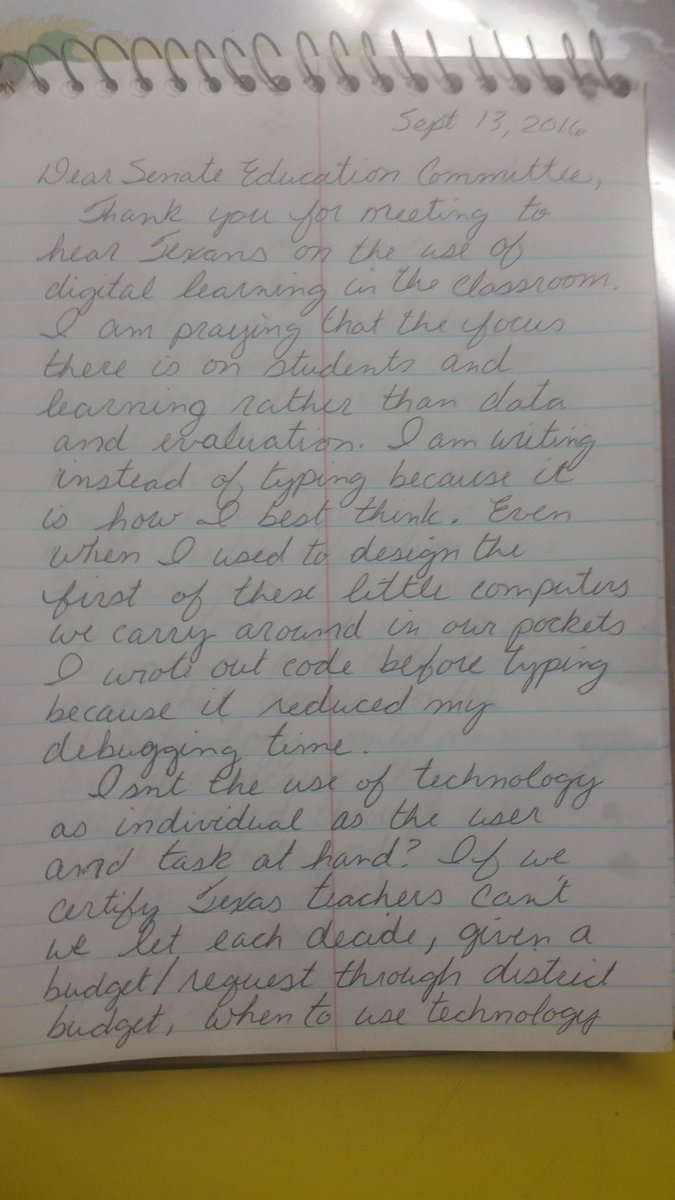 Sept 13, 2016
Dear Senate Education Committee,
Thank you for meeting to
hear Texans on the use of
digital learning in the classroom.
I am praying that the focus
there is on students and
learning rather than data
and evaluation. I am writing
instead of typing because it
is how I best think. Even
when I used to design the
first of these little computers
we carry around in our pockets
I wrote out code before typing
because it reduced my
debugging time.
Isnt the use of technology
as individual as the user
and task at hand? If we
certify Texas teachers can't
we let each decide, given a
budget/request through district
budget, when to use technology